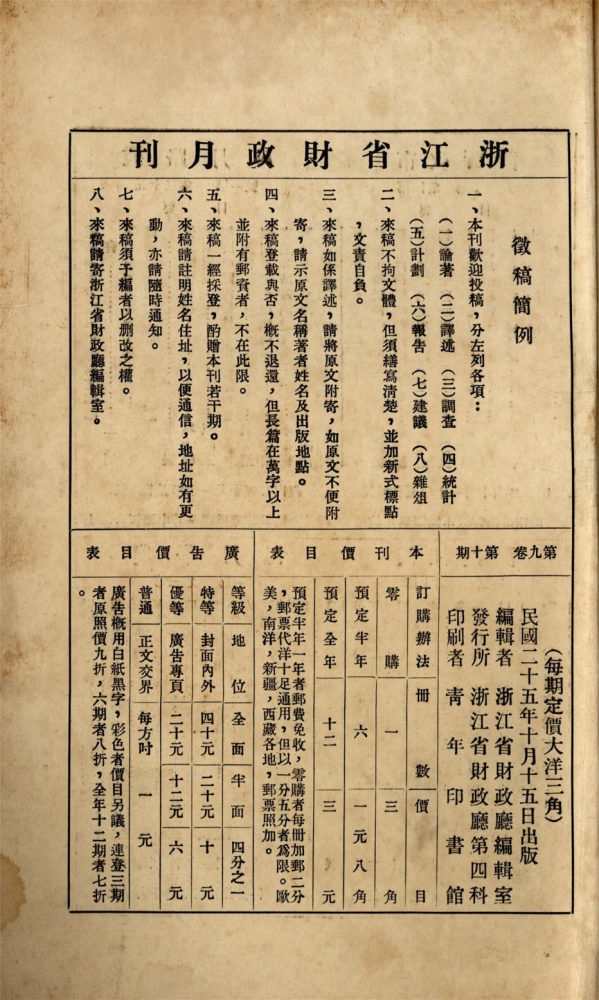 浙江省財政月刊
徵稿簡例
一、本刊歡迎投稿，分左列各項：
（一）論著　（二）譯述　（三）調查　（四）統計
（五）計劃　（六）報告　（七）建議　（八）雜俎
二、來稿不拘文體，但須繕寫清楚，並加新式標點
，文責自負。
三、來稿如係譯述，請將原文附寄，如原文不便附
寄，請示原文名稱著者姓名及出版地點。
四、來稿登載與否，概不退還，但長篇在萬字以上
並附有郵資者，不在此限。
五、來稿一經採登，酌贈本刊若干期。
六、來稿請註明姓名住址，以便通信，地址如有更
動，亦請隨時通知。
七、來稿須予編者以刪改之權。
八、來稿請寄浙江省財政廳編輯室。
第九卷　第十期
（每期定價大洋三角）
民國二十五年十月十五日出版
編輯者　浙江省財政廳編輯室
發行所　浙江省財政廳第四科
印刷者　青年印書館
本刊價目表
訂購辦法　冊數　價目
零購　一　三角
預定半年　六　一元八角
預定全年　十二　三元
預定半年一年者郵費免收，零購者每冊加郵二分
，郵票代洋十足通用，但以一分五分者為限。歐
美，南洋，新疆，西藏各地，郵票照加。
廣告價目表
等級　地位　全面　半面　四分之一
特等　封面內外　四十元　二十元　十元
優等　廣告專頁　二十元　十二元　六元
普通　正文交界　每方吋　一元
廣告概用白紙黑字，彩色者價目另議，連登三期
者原照價九折，六期者八折，全年十二期者七折
。